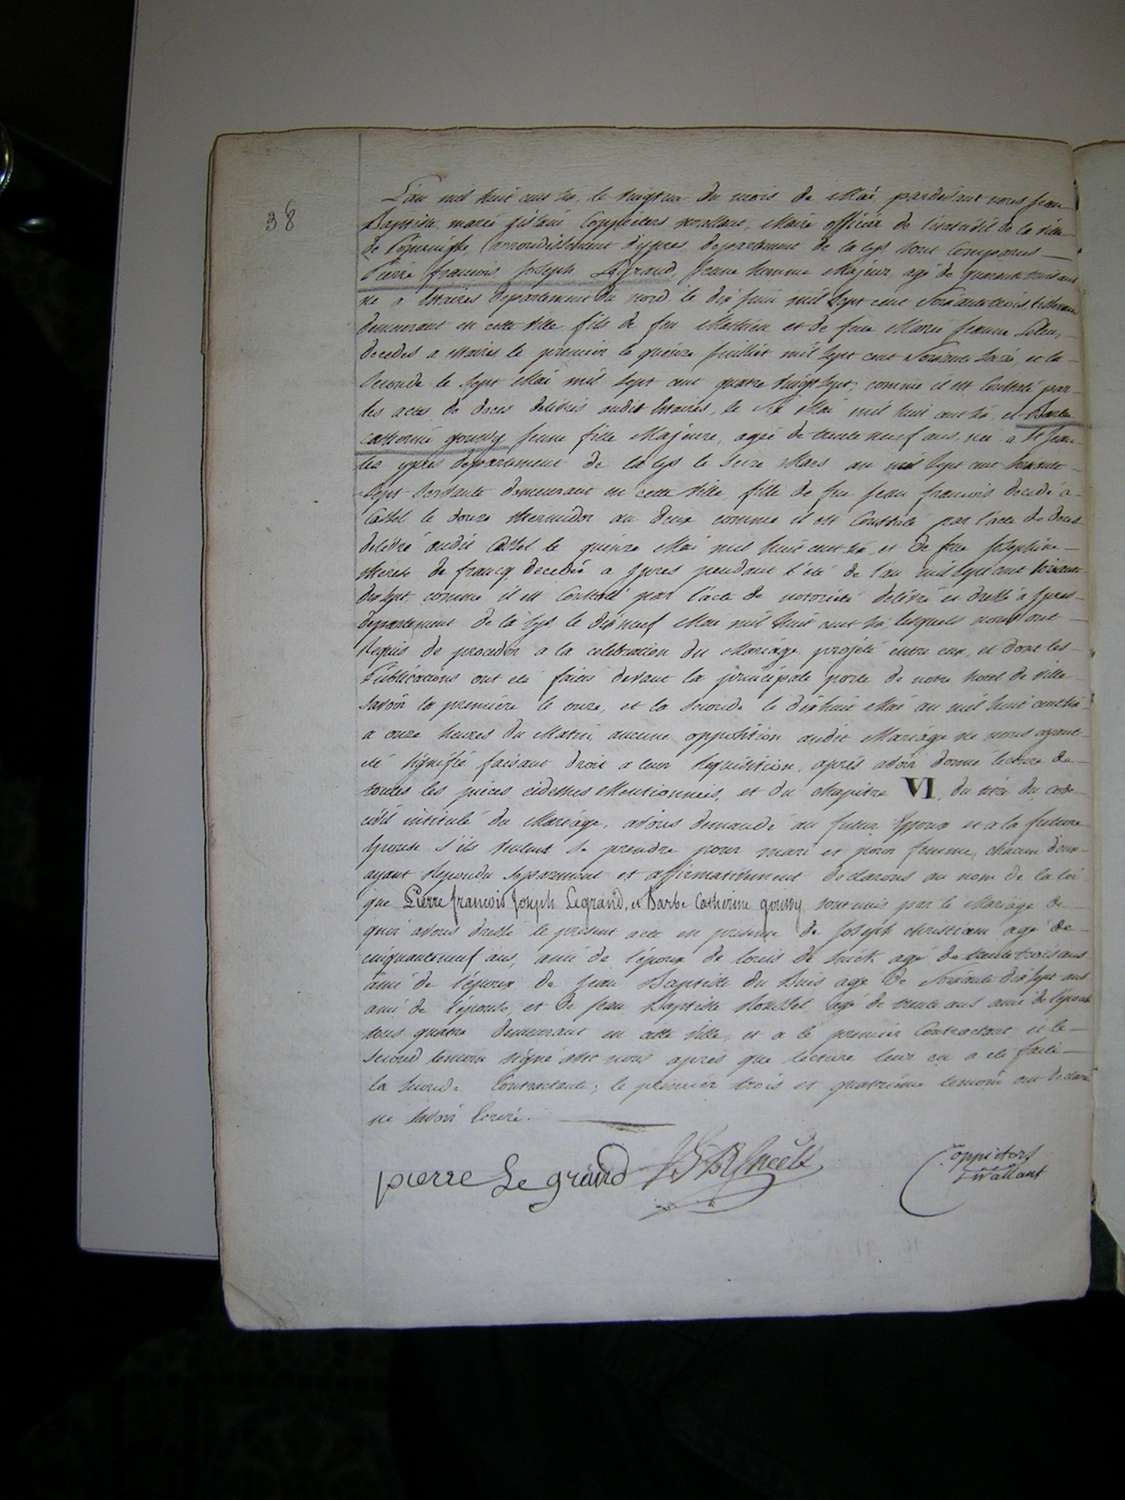 38
L'an mil huit cent six, le vingt un du mois de Mai, pardevant nous Jean
Baptiste, marie Coppieters wallant, Maire officier de l'état civil de la ville
de Poperinghe, arrondissement d'ypres département de la Lys sont comparus
Pierre françois Joseph Legrand, jeune homme Majeur agé de quarante trois ans
né a Estaires département du nord le dix juin mil sept cent soixante trois
demeurant en cette ville fils de feu Mathieu et de feue Marie Jeanne
decedés a Estaires le premier le quinze juillet mil sept cent soixante et la
seconde le sept Mai mil sept cent quatre vingt sept, comme il est constaté par
les actes de deces delivrés audit Estaires, le six Mai mil huit cent six, et Barbe
catherine goussy jeune fille Majeure, agée de trente neuf ans, née a St jean
les ypres département de la lys le seize Mars an mil sept cent soixante
sept demeurant en cette ville fille de feu jean francois decedé a
Cassel le douze thermidor an deux comme il est constaté par l'acte de deces
delivré audit Cassel le quinze Mai mil huit cent six, et de feue Josephine
therese de francq decedée a ypres pendant l'été de l'an mil sept cent soixante
dix sept comme il est constaté par l'acte de notorieté delivré et dressé a ypres
département de la Lys le dix neuf Mai mil huit cent six lesquels nous ont
requis de proceder a la celebration du Mariage projété entre eux, et dont les
Publications ont été faites devant la principale porte de notre hotel de ville
savoir la premiere le onze, et la seconde le dix huit Mai an mil huit cent six
a onze heures du Matin, aucune opposition audit Mariage ne nous ayant
été signifié faisant droit a leur requisition, après avoir donné lecture de
toutes les pièces cidessus Mentionnées, et du chapitre VI, du titre du code
civil intitulé du Mariage, avons demandé au futur époux et a la future
épouse s'ils veulent se prendre pour mari et pour femme, chacun d'eux
ayant repondu separement et affirmativement declarons au nom de la loi
que Pierre francois Joseph Legrand, et Barbe Catherine goussy, sont unis par le Mariage de
quoi avons dressé le présent acte en présence de Joseph christiaen agé de
cinquante neuf ans, ami de l'époux de louis de agé de trente trois ans
ami de l'époux, de Jean Baptiste du Buis agé de soixante dix sept ans
ami de l'épouse, et de Jean Baptiste Roussel agé de trente ans ami de l'épouse
tous quatre demeurant en cette ville, et a le premier Contractant et le
second temoin signé avec nous après que lecture leur en a été faite
la seconde Contractante, le premier trois et quatrième temoin ont declaré
ne savoir écrire.
pierre Le grand
Coppieters
wallant